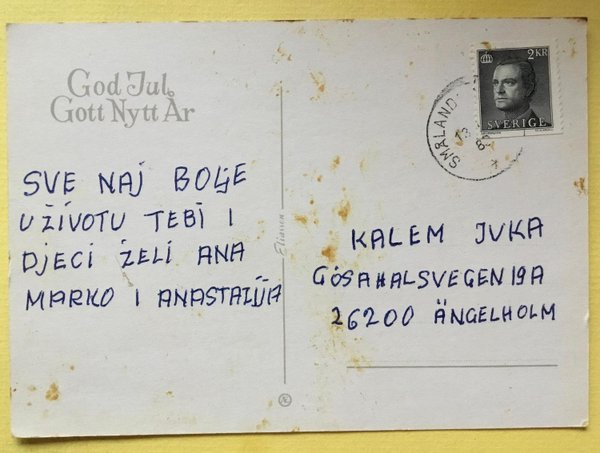 God Jul
Gott Nytt År
2 KR
SVERIGE
SMÅLAND
SVE NAJ BOLJE
U ŽIVOTU TEBI I
DJECI ŽELI ANA
MARKO I ANASTAZIJA
Eliason
KALEM JVKA
GÖSAHALSVEGEN 19A
26200 ÄNGELHOLM